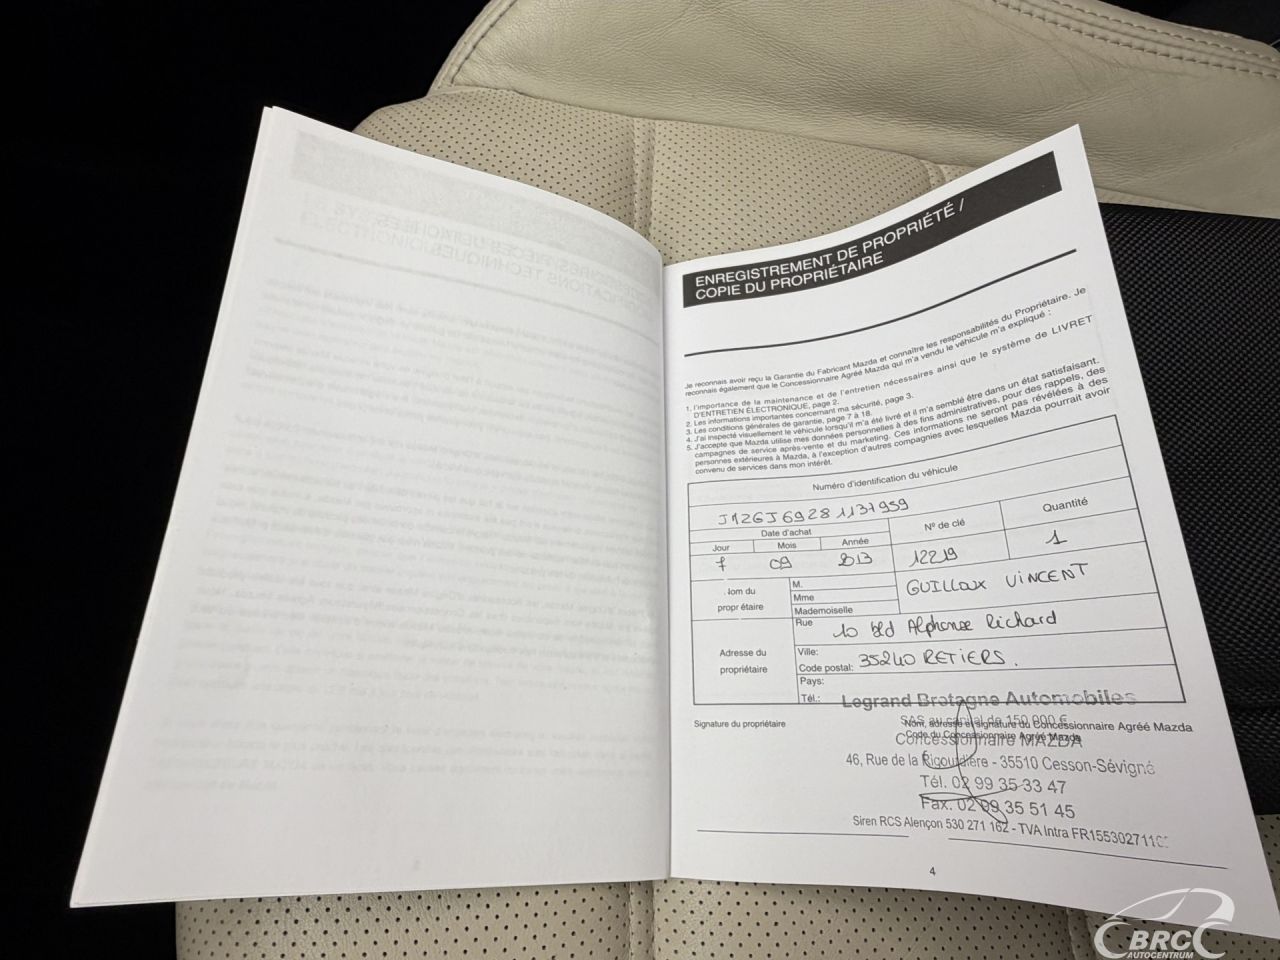 ENREGISTREMENT DE PROPRIÉTÉ /
COPIE DU PROPRIÉTAIRE
Je reconnais avoir reçu la Garantie du Fabricant Mazda et connaître les responsabilités du Propriétaire. Je
reconnais également que le Concessionnaire Agréé Mazda qui m'a vendu le véhicule m'a expliqué :
1. l'importance de la maintenance et de l'entretien nécessaires ainsi que le système de LIVRET
D'ENTRETIEN ÉLECTRONIQUE, page 2.
2. Les informations importantes concernant ma sécurité, page 3.
3. Les conditions générales de garantie, page 7 à 18.
4. J'ai inspecté visuellement le véhicule lorsqu'il m'a été livré et il m'a semblé être dans un état satisfaisant.
5. J'accepte que Mazda utilise mes données personnelles à des fins administratives, pour des rappels, des
campagnes de service après-vente et du marketing. Ces informations ne seront pas révélées à des
personnes extérieures à Mazda, à l'exception d'autres compagnies avec lesquelles Mazda pourrait avoir
convenu de services dans mon intérêt.
Numéro d'identification du véhicule
JMZGJ69281137959
Date d'achat
N° de clé
Quantité
Jour
Mois
Année
7
09
2013
12219
1
Nom du
propriétaire
M.
Mme
Mademoiselle
GUILLOUX VINCENT
Adresse du
propriétaire
Rue
10 bld Alphonse Richard
Ville:
Code postal: 35240 RETIERS.
Pays:
Tél.:
Legrand Bretagne Automobiles
Signature du propriétaire
SAS au capital de 150 000 €
Nom, adresse et signature du Concessionnaire Agréé Mazda
Code du Concessionnaire Agréé Mazda
Concessionnaire MAZDA
46, Rue de la Rigourdière - 35510 Cesson-Sévigné
Tél. 02 99 35 33 47
Fax. 02 99 35 51 45
Siren RCS Alençon 530 271 162 - TVA Intra FR1553027116
4
BRC
AUTOCENTRUM